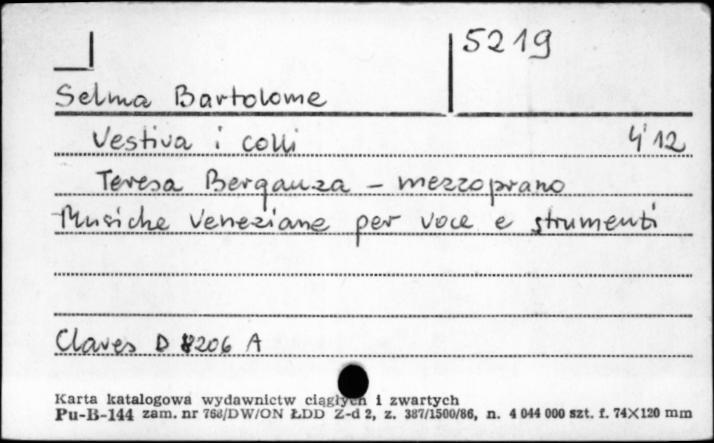 5219
Selma Bartolome
Vestiva i colli 4'12
Teresa Berganza - mezzoprano
Musiche Veneziane per voce e strumenti
Claves D 8206 A
Karta katalogowa wydawnictw ciągłych i zwartych
Pu-B-144 zam. nr 768/DW/ON ŁDD Z-d 2, z. 387/1500/86, n. 4 044 000 szt. f. 74X120 mm